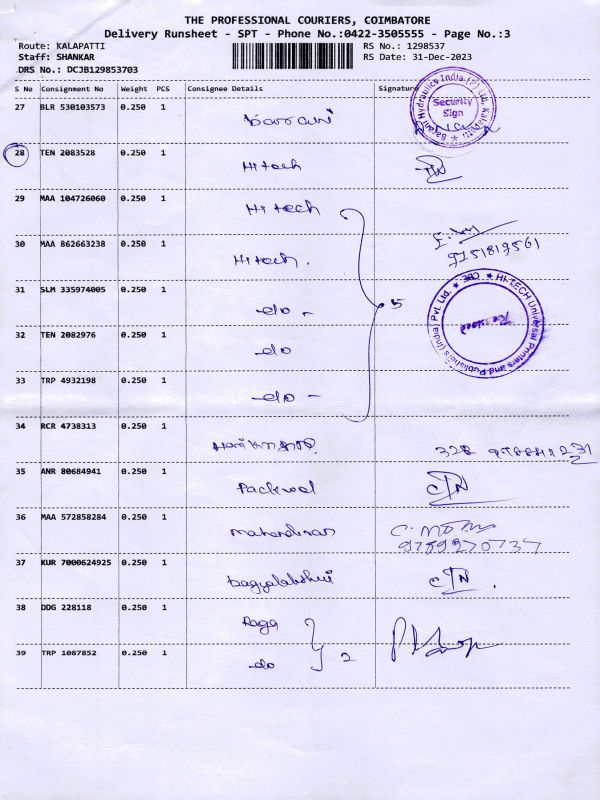 THE PROFESSIONAL COURIERS, COIMBATORE
Delivery Runsheet - SPT - Phone No.:0422-3505555 - Page No.:3
Route: KALAPATTI RS No.: 1298537
Staff: SHANKAR RS Date: 31-Dec-2023
DRS No.: DCJB129853703
S No Consignment No Weight PCS Consignee Details Signature
27 BLR 530103573 0.250 1
Security Sign
28 TEN 2083528 0.250 1 Hitech
29 MAA 104726060 0.250 1 Hi tech
30 MAA 862663238 0.250 1 Hitech.
9751819561
31 SLM 335974005 0.250 1 -do - 5
HI-TECH Universal Printers and Publishers (India) Pvt. Ltd. ★ CBE ★
32 TEN 2082976 0.250 1 do
33 TRP 4932198 0.250 1 -do -
34 RCR 4738313 0.250 1
35 ANR 80684941 0.250 1 Packwel
36 MAA 572858284 0.250 1 Mahendiran
9789270737
37 KUR 7000624925 0.250 1 bagyalakshmi
38 DDG 228118 0.250 1 Raga
39 TRP 1087852 0.250 1 do 2